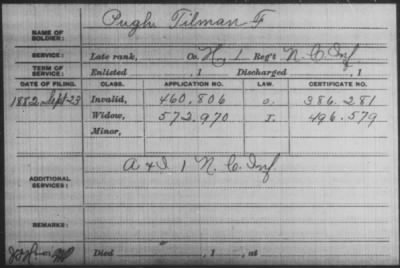 Pugh Tilman F
NAME OF SOLDIER:
SERVICE: Late rank, Co. H, 1 Reg't N.C. Inf
TERM OF SERVICE: Enlisted , 1 Discharged , 1
DATE OF FILING. CLASS. APPLICATION NO. LAW. CERTIFICATE NO.
1882, Sept 23 Invalid, 460.806 o. 386.281
Widow, 572.970 496.579
Minor,
ADDITIONAL SERVICES: A & I 1 N.C. Inf.
REMARKS:
Died , 1 , at